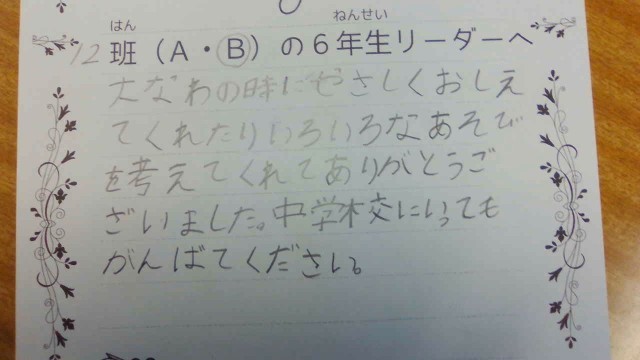 はん ねんせい
12班（A・B）の6年生リーダーへ
大なわの時にやさしくおしえ
てくれたりいろいろなあそび
を考えてくれてありがとうご
ざいました。中学校にいっても
がんばてください。